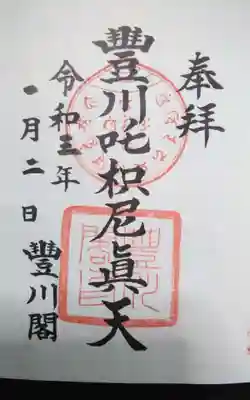 奉拝
豐川吒枳尼眞天
令和三年
一月二日
豐川閣